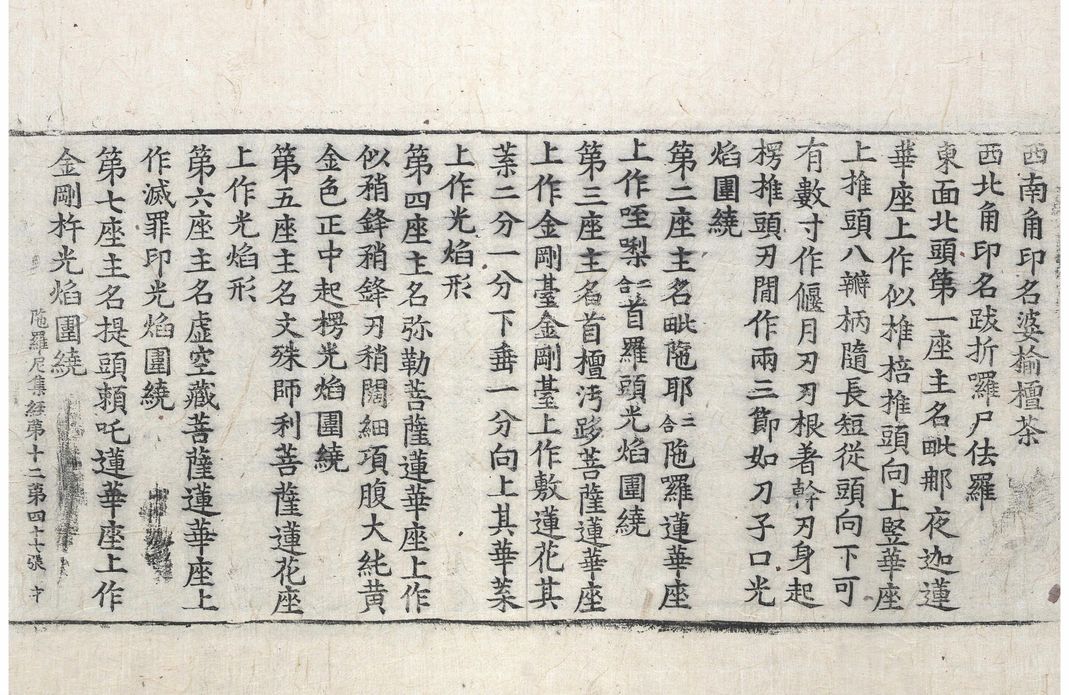 西南角印名婆揄檀茶
西北角印名跋折囉尸佉羅
東面北頭第一座主名毗那夜迦蓮
華座上作似推棓推頭向上竪華座
上推頭八瓣柄隨長短從頭向下可
有數寸作偃月刃刃根著幹刃身起
楞推頭刃間作兩三節如刀子口光
焰圍繞
第二座主名毗陁耶二合陁羅蓮華座
上作咥㗚二合首羅頭光焰圍繞
第三座主名首檀沔跢菩薩蓮華座
上作金剛臺金剛臺上作敷蓮花其
葉二分一分下垂一分向上其華葉
上作光焰形
第四座主名弥勒菩薩蓮華座上作
似矟鋒矟鋒刃稍闊細項腹大純黄
金色正中起楞光焰圍繞
第五座主名文殊師利菩薩蓮花座
上作光焰形
第六座主名虚空藏菩薩蓮華座上
作滅罪印光焰圍繞
第七座主名提頭頼吒蓮華座上作
金剛杵光焰圍繞
陁羅尼集経第十二第四十七張 才